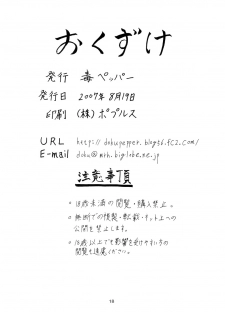 おくずけ
発行 毒ペッパー
発行日 2007年8月19日
印刷 (株)ポプルス
URL http://dokupepper.blog56.fc2.com/
E-mail doku@mth.biglobe.ne.jp
注意事項
・18歳未満の閲覧・購入禁止。
・無断での複製・転載・ネット上への
公開を禁止します。
・18歳以上でも影響を受けやすい方の
閲覧も遠慮ください。